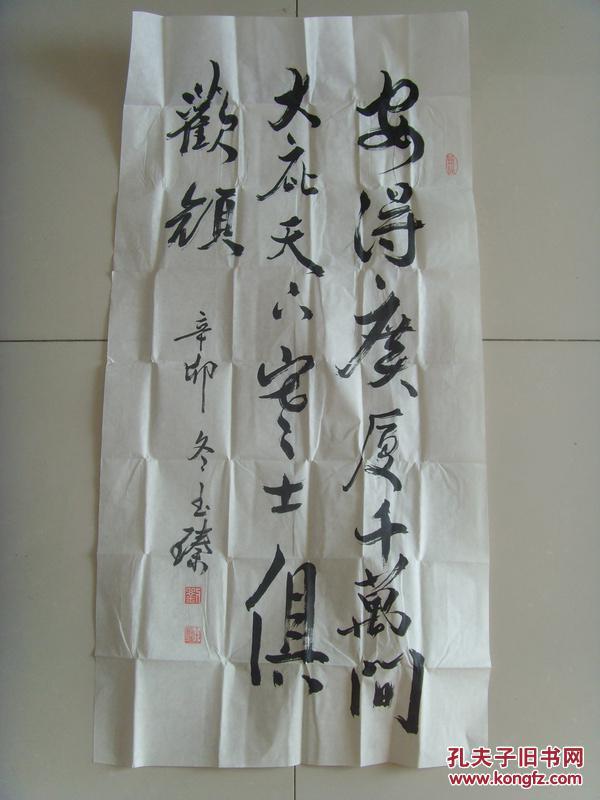 安得廣厦千萬間
大庇天下寒士俱
歡顔
辛卯冬玉臻
孔夫子旧书网
www.kongfz.com